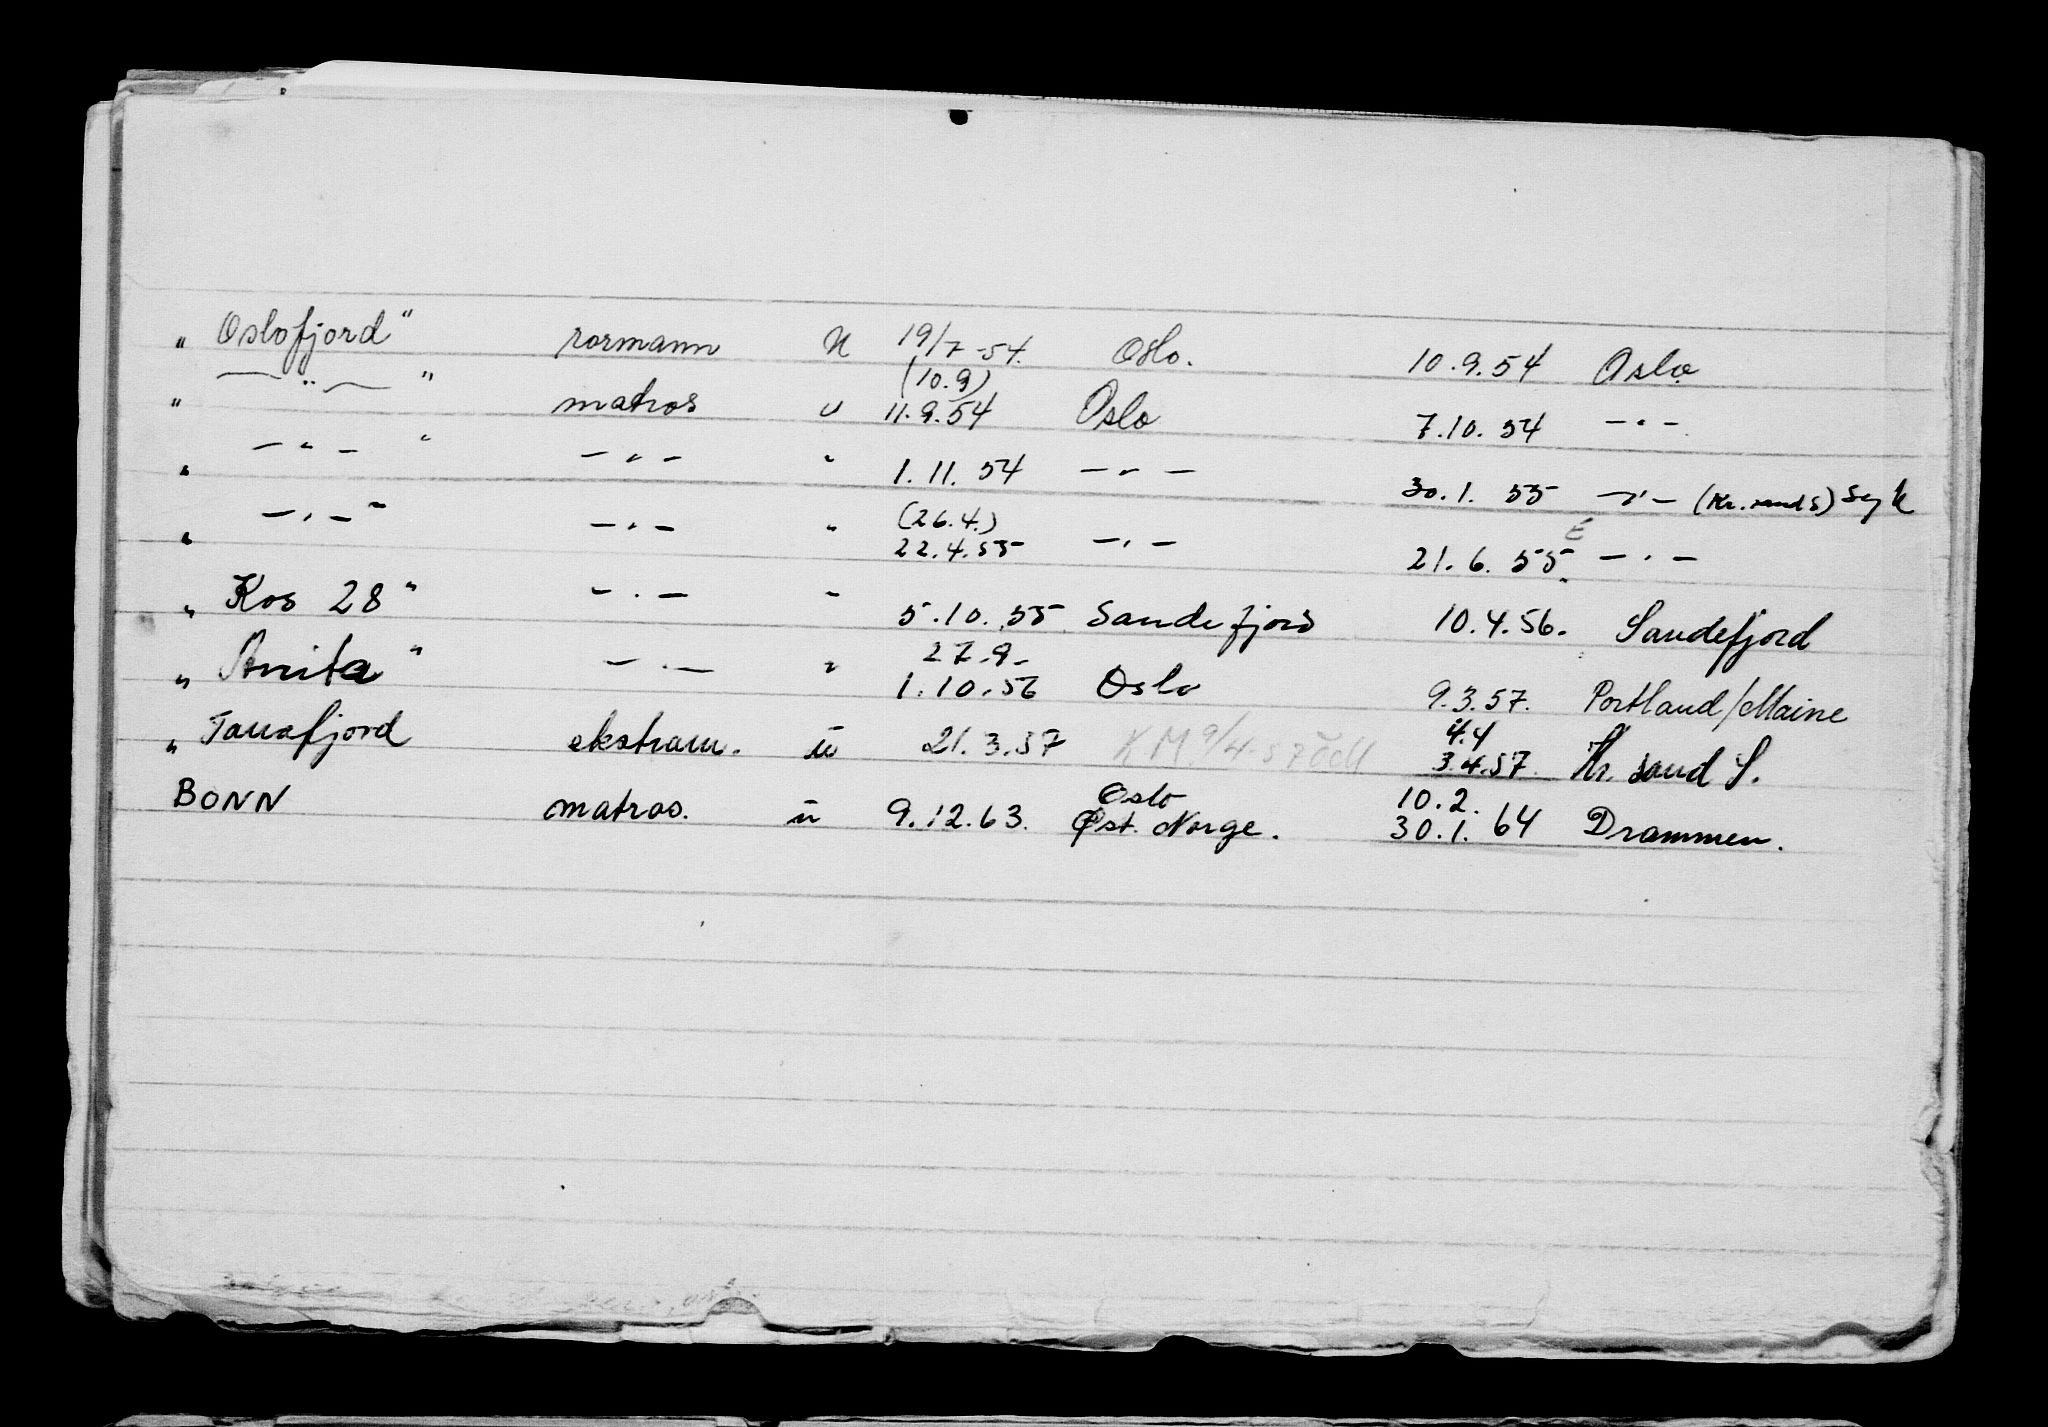 „ Oslofjord" rormann U 19/7-54. Oslo. 10.9.54 Oslo
(10.9)
„ — " — " matros u 11.9.54 Oslo 7.10.54 — " —
„ — " — " — " — " 1.11.54 — " — 30.1.55 — " — (Kr.sand S) Syk
(26.4.) E
„ — " — " — " — " 22.4.55 — " — 21.6.55. — " —
„ Kos 28" — " — " 5.10.55 Sandefjord 10.4.56. Sandefjord
27.9-
„ Anita" — " — " 1.10.56 Oslo 9.3.57. Portland/Maine
4.4
„ Tanafjord ekstram. u 21.3.57 KM 9/4-57 3.4.57. Kr. sand S.
Oslo 10.2.
BONN matros. u 9.12.63. Øst. Norge. 30.1.64 Drammen.